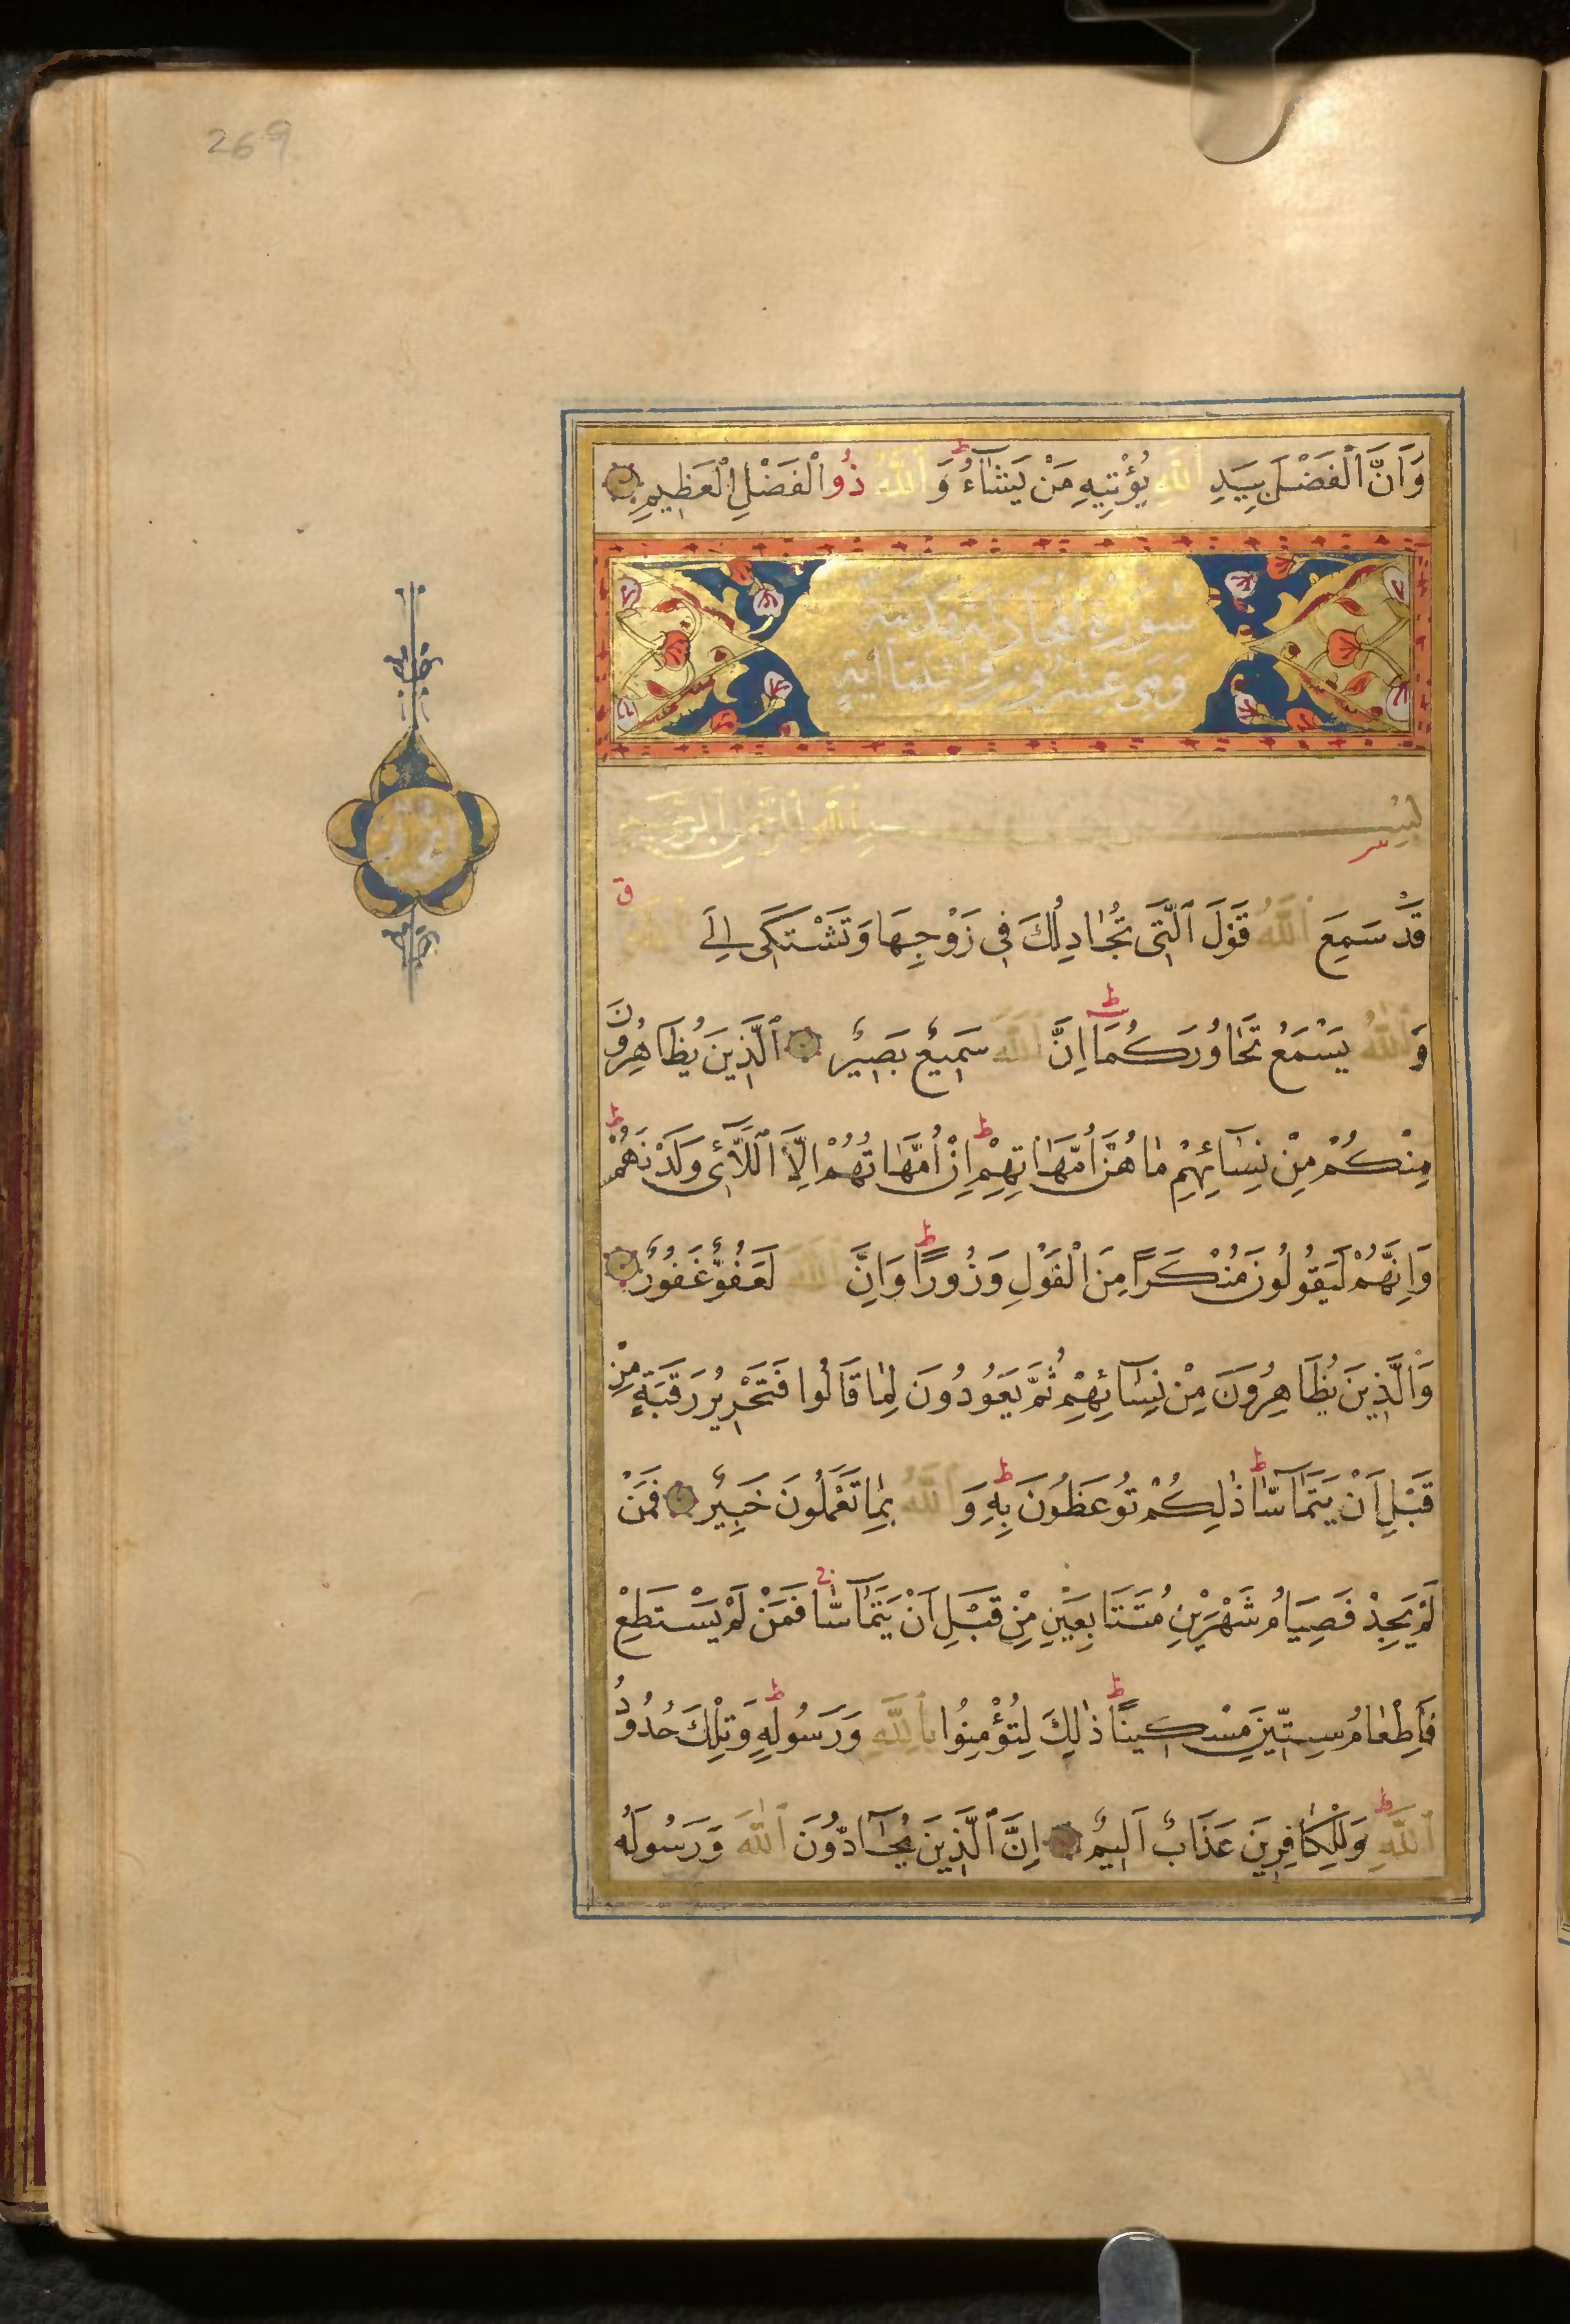 269
وَاَنَّ الْفَضْلَ بِيَدِ اللّٰهِ يُؤْتِيهِ مَنْ يَشَاۤءُ ط وَاللّٰهُ ذُو الْفَضْلِ الْعَظِيمِ
سورة المجادلة مدنية
وهي عشرون واثنتا اية
بِسْمِ اللّٰهِ الرَّحْمٰنِ الرَّحِيمِ
قَدْ سَمِعَ اللّٰهُ قَوْلَ الَّتِى تُجَادِلُكَ فِى زَوْجِهَا وَتَشْتَكِى اِلَى اللّٰهِ ق
وَاللّٰهُ يَسْمَعُ تَحَاوُرَكُمَا ط اِنَّ اللّٰهَ سَمِيعٌ بَصِيرٌ الَّذِينَ يُظَاهِرُونَ
مِنْكُمْ مِنْ نِسَاۤئِهِمْ مَا هُنَّ اُمَّهَاتِهِمْ ط اِنْ اُمَّهَاتُهُمْ اِلَّا اللَّاۤئِى وَلَدْنَهُمْ ط
وَاِنَّهُمْ لَيَقُولُونَ مُنْكَرًا مِنَ الْقَوْلِ وَزُورًا ط وَاِنَّ اللّٰهَ لَعَفُوٌّ غَفُورٌ
وَالَّذِينَ يُظَاهِرُونَ مِنْ نِسَاۤئِهِمْ ثُمَّ يَعُودُونَ لِمَا قَالُوا فَتَحْرِيرُ رَقَبَةٍ مِنْ
قَبْلِ اَنْ يَتَمَاۤسَّا ط ذٰلِكُمْ تُوعَظُونَ بِهِ ط وَاللّٰهُ بِمَا تَعْمَلُونَ خَبِيرٌ فَمَنْ
لَمْ يَجِدْ فَصِيَامُ شَهْرَيْنِ مُتَتَابِعَيْنِ مِنْ قَبْلِ اَنْ يَتَمَاۤسَّا ج فَمَنْ لَمْ يَسْتَطِعْ
فَاِطْعَامُ سِتِّينَ مِسْكِينًا ط ذٰلِكَ لِتُؤْمِنُوا بِاللّٰهِ وَرَسُولِهِ ط وَتِلْكَ حُدُودُ
اللّٰهِ ط وَلِلْكَافِرِينَ عَذَابٌ اَلِيمٌ اِنَّ الَّذِينَ يُحَاۤدُّونَ اللّٰهَ وَرَسُولَهُ